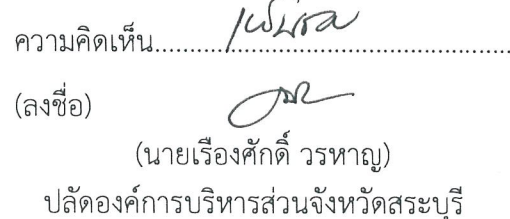 ความคิดเห็น
(ลงชื่อ)
(นายเรืองศักดิ์ วรหาญ)
ปลัดองค์การบริหารส่วนจังหวัดสระบุรี